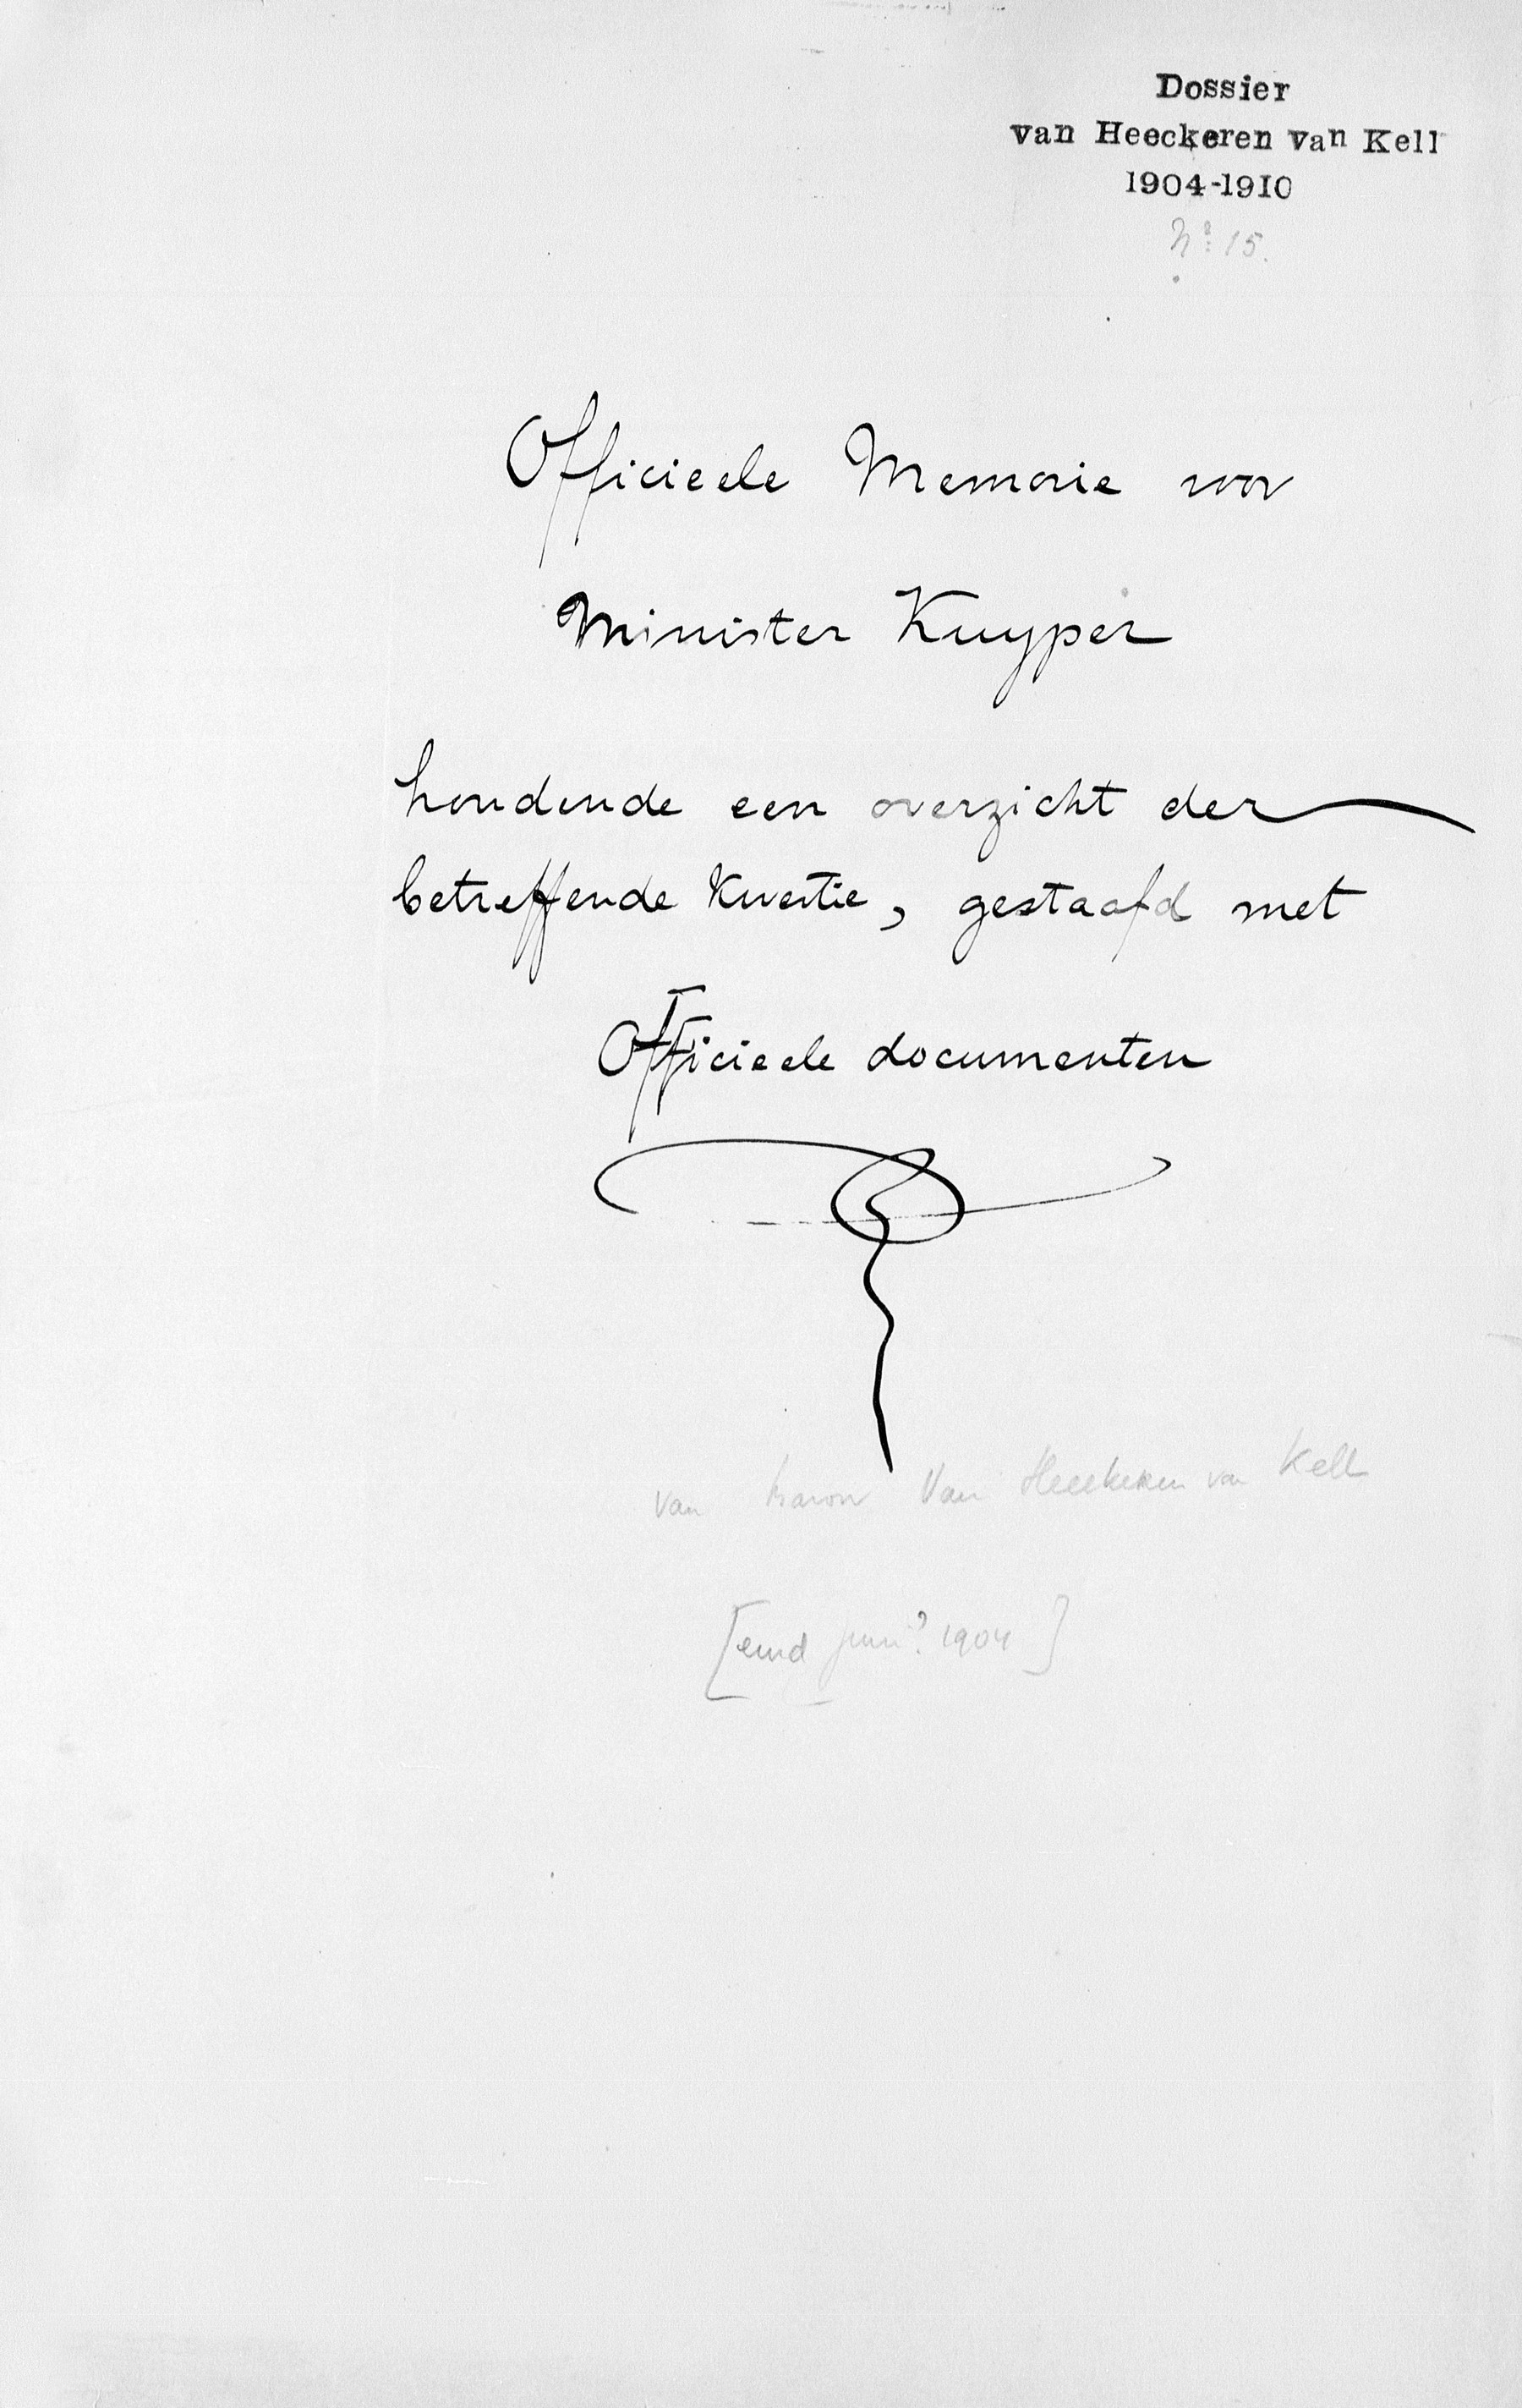 Dossier
van Heeckeren van Kell
1904-1910
No: 15.
Officieele Memorie voor
Minister Kuyper
houdende een overzicht der
betreffende Kwestie, gestaafd met
Officieele documenten
van baron Van Heeckeren van Kell
[eind juni? 1904]